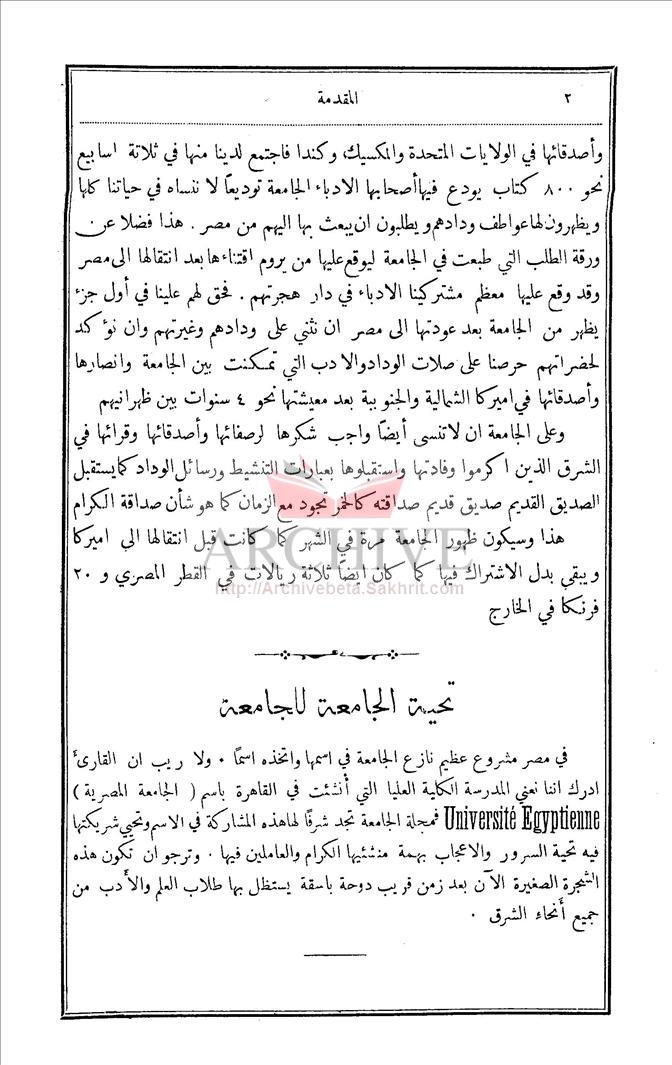 ٢ المقدمة
وأصدقائها في الولايات المتحدة والمكسيك وكندا فاجتمع لدينا منها في ثلاثة اسابيع
نحو ٨٠٠ كتاب يودع فيها أصحابها الادباء الجامعة توديعاً لا ننساه في حياتنا كلها
ويظهرون لها عواطف ودادهم ويطلبون ان يبعث بها اليهم من مصر . هذا فضلا عن
ورقة الطلب التي طبعت في الجامعة ليوقع عليها من يروم اقتناءها بعد انتقالها الى مصر
وقد وقع عليها معظم مشتركينا الادباء في دار هجرتهم . فحق لهم علينا في أول جزء
يظهر من الجامعة بعد عودتها الى مصر ان نثني على ودادهم وغيرتهم وان نؤكد
لحضراتهم حرصنا على صلات الوداد والادب التي تمكنت بين الجامعة وانصارها
وأصدقائها في اميركا الشمالية والجنوبية بعد معيشتها نحو ٤ سنوات بين ظهرانيهم
وعلى الجامعة ان لا تنسى أيضاً واجب شكرها لرصفائها وأصدقائها وقرائها في
الشرق الذين اكرموا وفادتها واستقبلوها بعبارات التنشيط ورسائل الوداد كما يستقبل
الصديق القديم صديق قديم صداقته كالخمر تجود مع الزمان كما هو شأن صداقة الكرام
هذا وسيكون ظهور الجامعة مرة في الشهر كما كانت قبل انتقالها الى اميركا
ويبقى بدل الاشتراك فيها كما كان ايضاً ثلاثة ريالات في القطر المصري و ٢٠
فرنكا في الخارج
ARCHIVE
http://Archivebeta.Sakhrit.com
تحية الجامعة للجامعة
في مصر مشروع عظيم نازع الجامعة في اسمها واتخذه اسماً . ولا ريب ان القارئ
ادرك اننا نعني المدرسة الكلية العليا التي أنشئت في القاهرة باسم ( الجامعة المصرية )
Université Egyptienne فمجلة الجامعة تجد شرفاً لها هذه المشاركة في الاسم وتحيي شريكتها
فيه تحية السرور والاعجاب بهمة منشئيها الكرام والعاملين فيها . وترجو ان تكون هذه
الشجرة الصغيرة الآن بعد زمن قريب دوحة باسقة يستظل بها طلاب العلم والأدب من
جميع أنحاء الشرق .